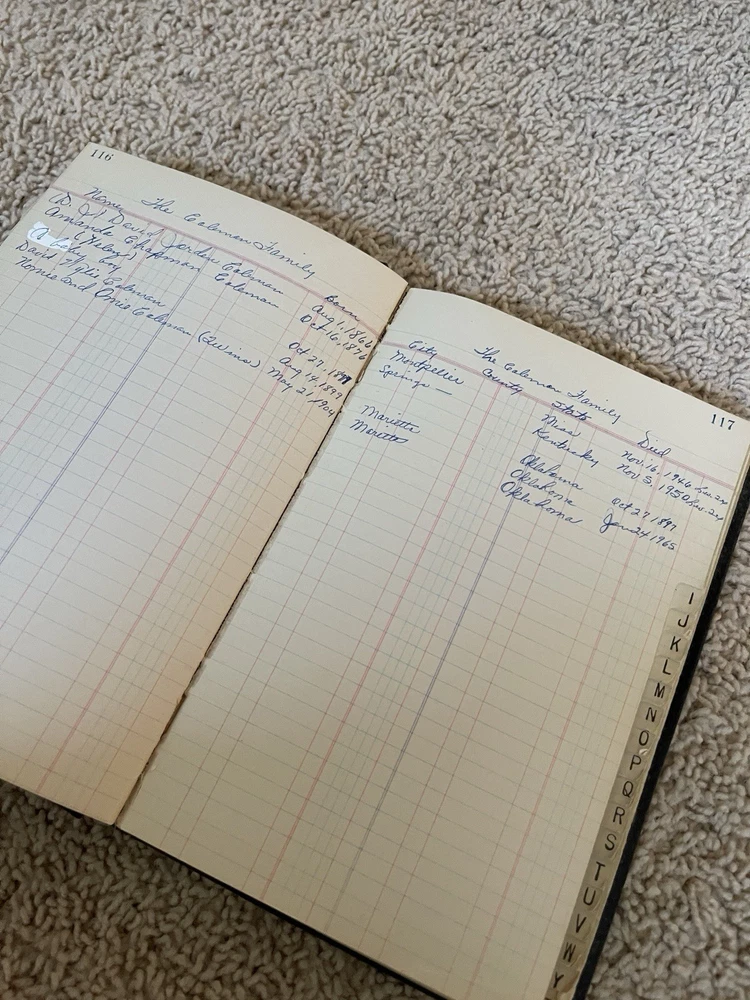 116
The Coleman Family
Name Born
(D. J.) David Jorden Coleman Aug 1, 1866
Amanda Chapman Coleman Oct 16, 1876
(Kelsy)
Baby Boy Oct 27, 1897
David Wylie Coleman Aug 14, 1899
Nomie and Omie Coleman (Twins) May 21, 1904
117
The Coleman Family
City County State Died
Montpelier Miss Nov. 16, 1946
Springs — Kentucky Nov 5, 1950
Oklahoma Oct 27 1897
Marietta Oklahoma Jan 24 1965
Marietta Oklahoma
I
J
K
L
M
N
O
P
Q
R
S
T
U
V
W
Y